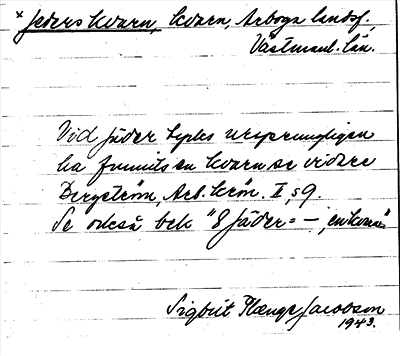 * Jeders kvarn, kvarn, Arboga landsf.
Västmanl. län.
Vid Jäder tycks ursprungligen
ha funnits en kvarn, se vidare
Bergström, Arb. krön. II, s 9.
Se också bet. "8 Jäder = –,
Sigbrit Plænge Jacobson
1943.